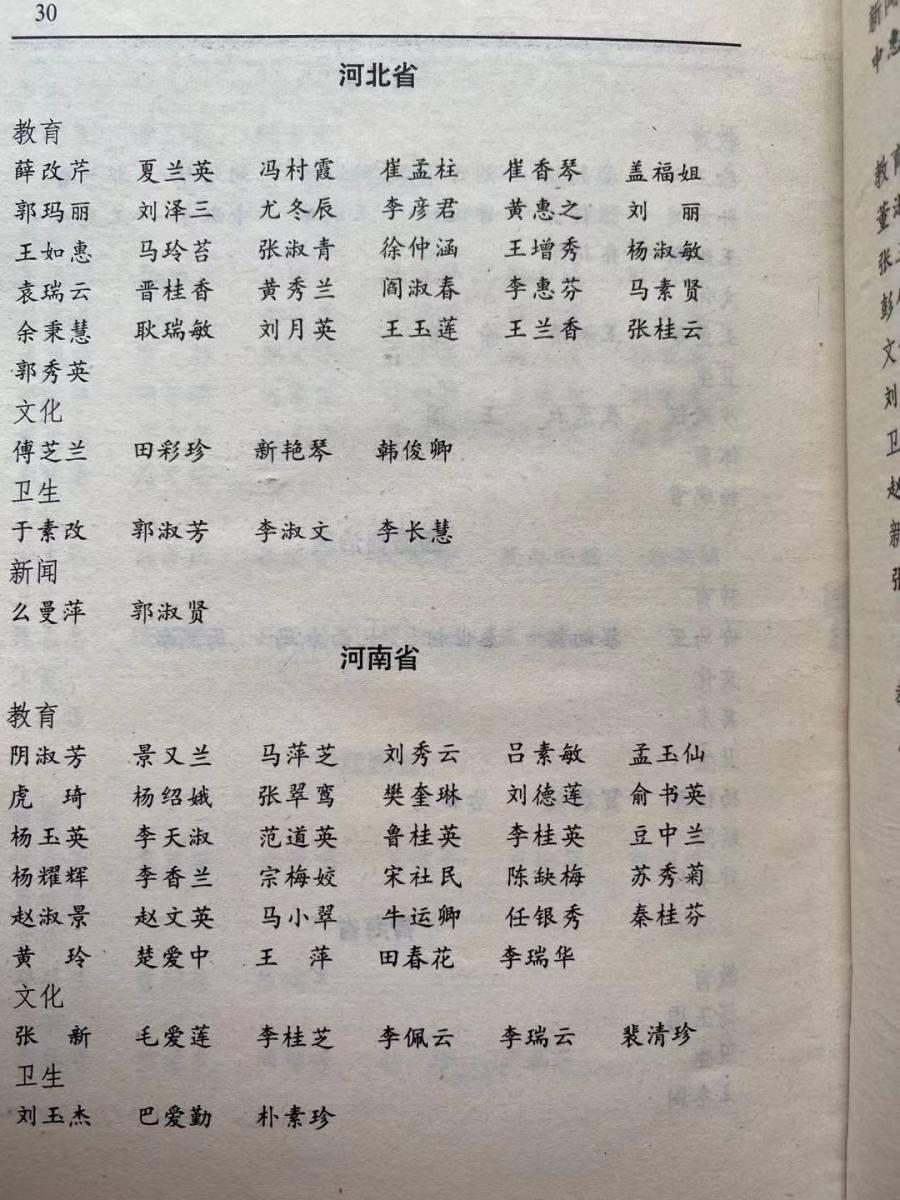 30
河北省
教育
薛改芹 夏兰英 冯村霞 崔孟柱 崔香琴 盖福姐
郭玛丽 刘泽三 尤冬辰 李彦君 黄惠之 刘 丽
王如惠 马玲苔 张淑青 徐仲涵 王增秀 杨淑敏
袁瑞云 晋桂香 黄秀兰 阎淑春 李惠芬 马素贤
余秉慧 耿瑞敏 刘月英 王玉莲 王兰香 张桂云
郭秀英
文化
傅芝兰 田彩珍 新艳琴 韩俊卿
卫生
于素改 郭淑芳 李淑文 李长慧
新闻
么曼萍 郭淑贤
河南省
教育
阴淑芳 景又兰 马萍芝 刘秀云 吕素敏 孟玉仙
虎 琦 杨绍娥 张翠鸾 樊奎琳 刘德莲 俞书英
杨玉英 李天淑 范道英 鲁桂英 李桂英 豆中兰
杨耀辉 李香兰 宗梅姣 宋社民 陈缺梅 苏秀菊
赵淑景 赵文英 马小翠 牛运卿 任银秀 秦桂芬
黄 玲 楚爱中 王 萍 田春花 李瑞华
文化
张 新 毛爱莲 李桂芝 李佩云 李瑞云 裴清珍
卫生
刘玉杰 巴爱勤 朴素珍